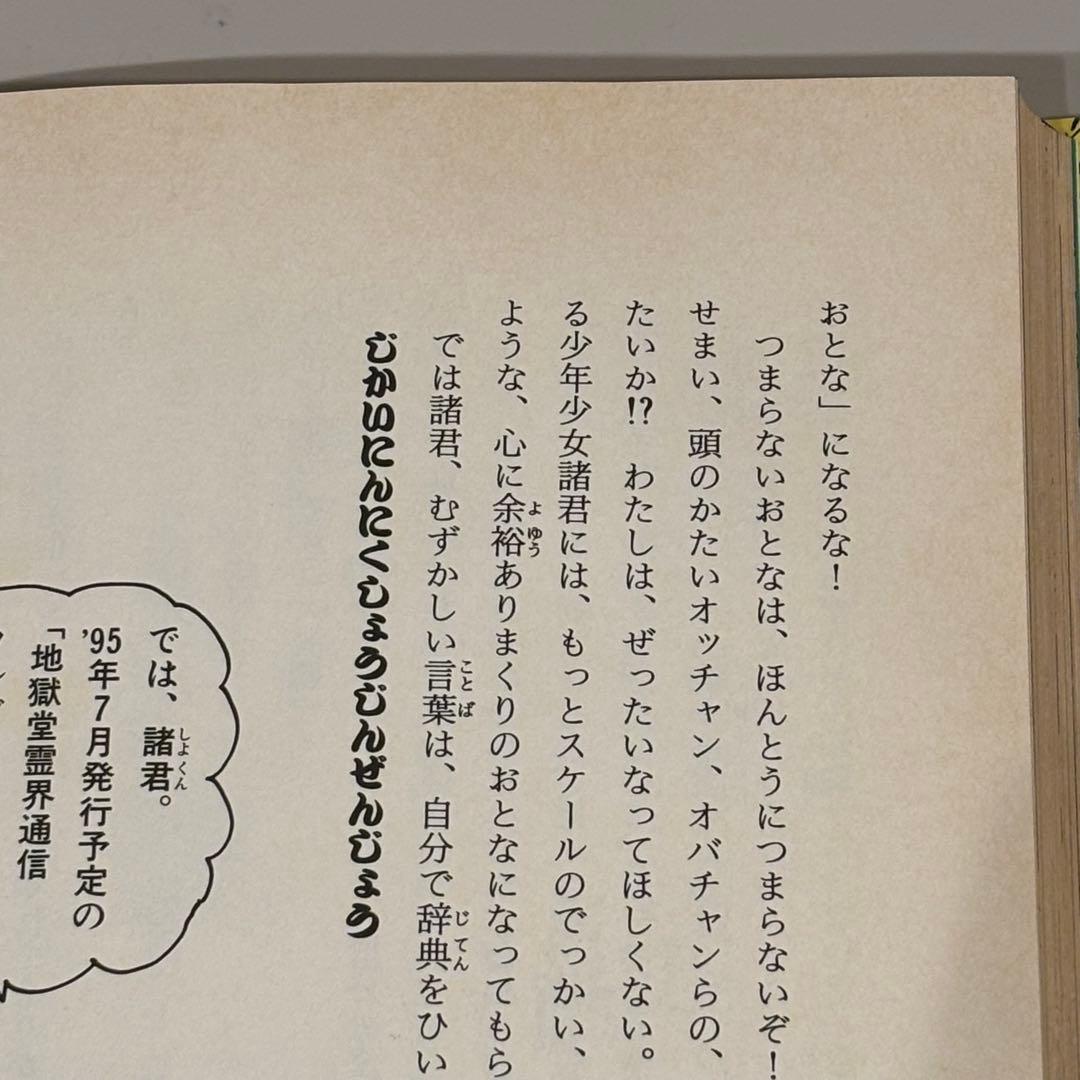 おとな」になるな！
つまらないおとなは、ほんとうにつまらないぞ！
せまい、頭のかたいオッチャン、オバチャンらの、
たいか!?　わたしは、ぜったいなってほしくない。
る少年少女諸君には、もっとスケールのでっかい、
ような、心に余裕ありまくりのおとなになってもら
では諸君、むずかしい言葉は、自分で辞典をひい
じかいにんにくしょうじんぜんじょう
では、諸君。
'95年7月発行予定の
「地獄堂霊界通信